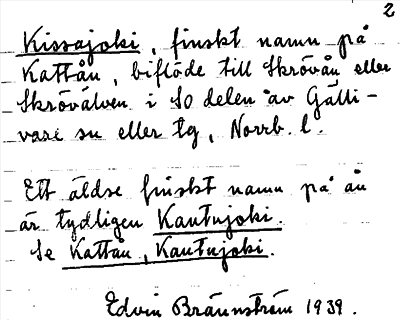 2
Kissajoki, finskt namn på
Kattån, biflöde till Skrövån eller
Skrövälven i So delen av Gälli-
vare sn eller tg, Norrb. l.
Ett äldre finskt namn på ån
är tydligen Kautujoki.
Se Kattån, Kautujoki.
Edvin Brännström 1939.